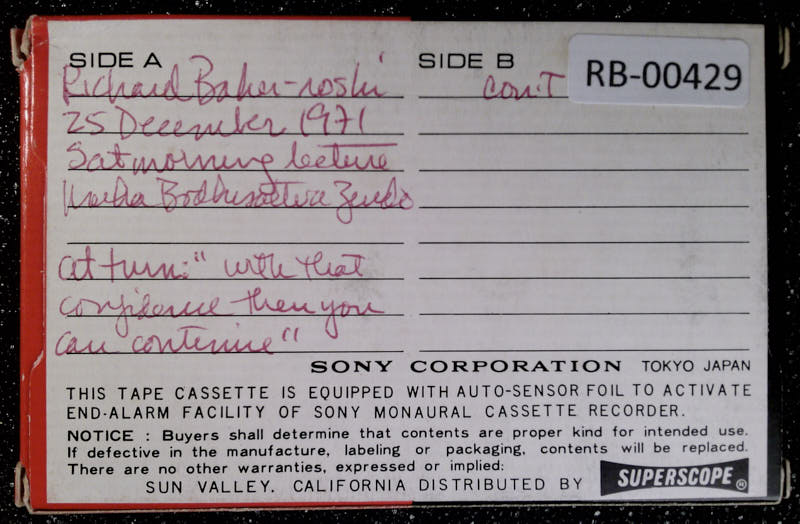 SIDE A
Richard Baker-roshi
25 December 1971
Sat morning lecture
Maha Bodhisattva Zendo
at turn: "with that
confidence then you
can continue"
SIDE B
con.T
RB-00429
SONY CORPORATION TOKYO JAPAN
THIS TAPE CASSETTE IS EQUIPPED WITH AUTO-SENSOR FOIL TO ACTIVATE
END-ALARM FACILITY OF SONY MONAURAL CASSETTE RECORDER.
NOTICE : Buyers shall determine that contents are proper kind for intended use.
If defective in the manufacture, labeling or packaging, contents will be replaced.
There are no other warranties, expressed or implied:
SUN VALLEY. CALIFORNIA DISTRIBUTED BY SUPERSCOPE®